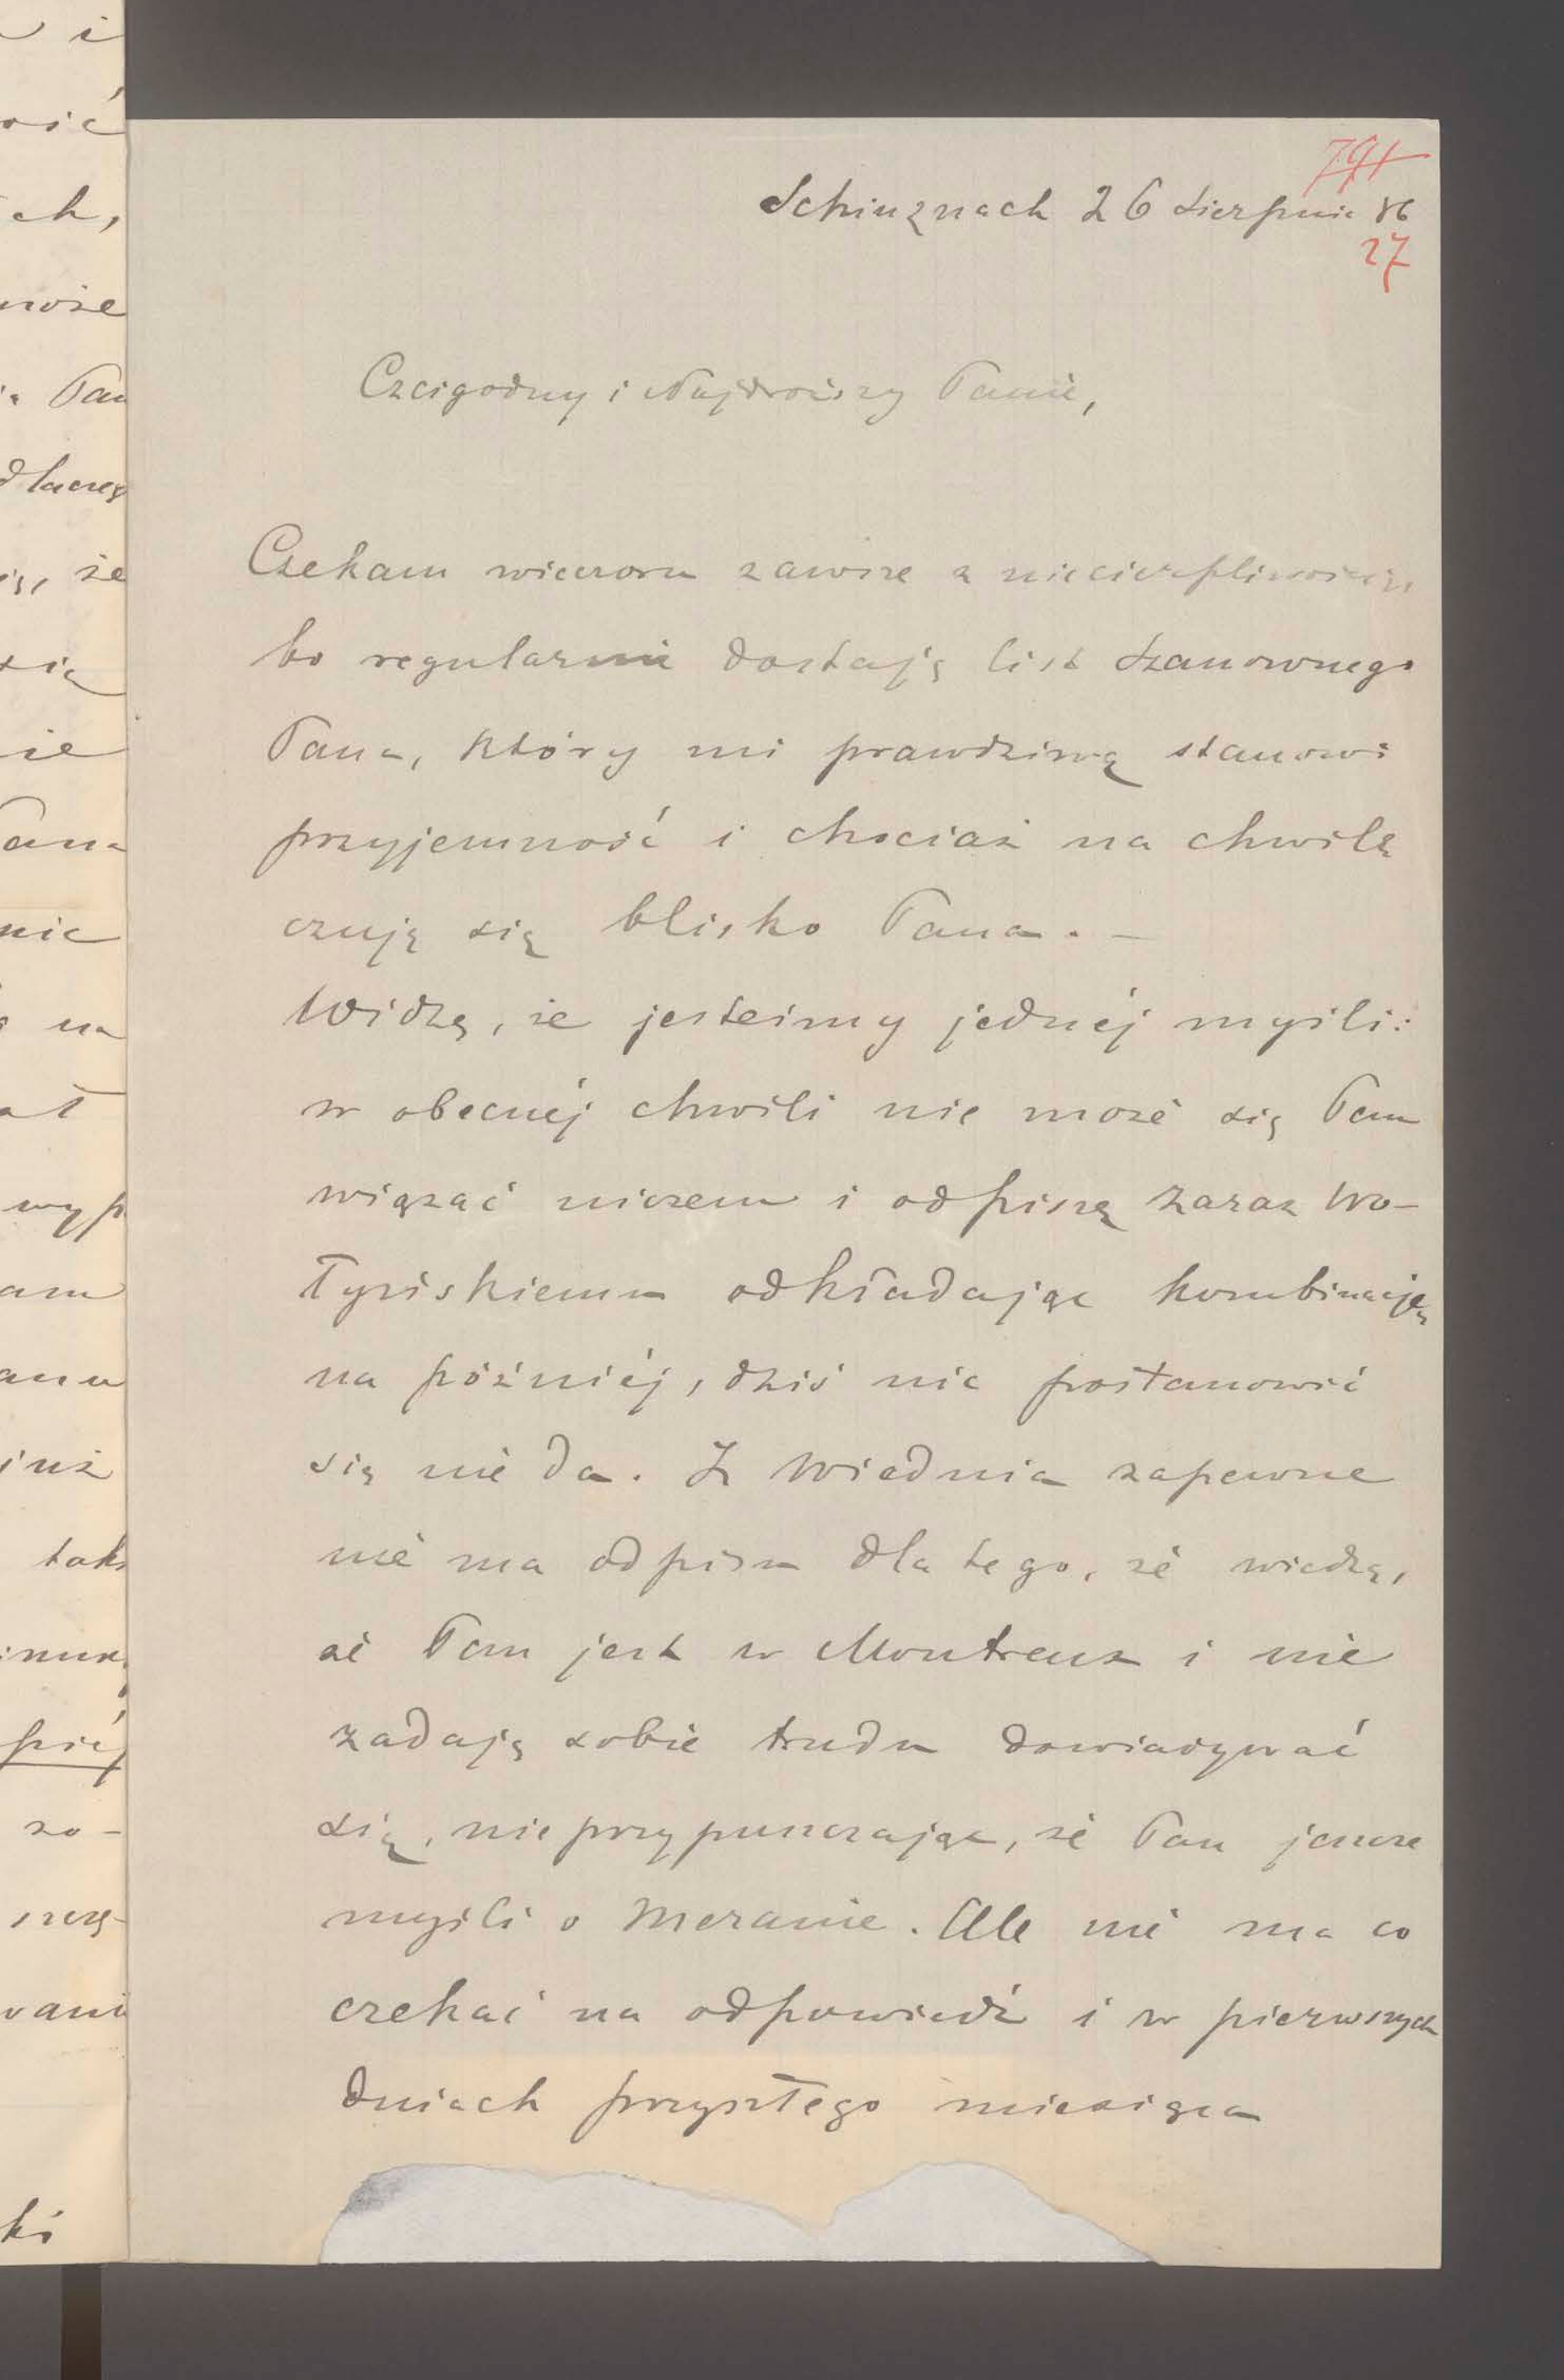 791
Schinznach 26 Sierpnia 86
27
Czcigodny i Najdroższy Panie,
Czekam wieczora zawsze z niecierpliwością,
bo regularnie dostaję list Szanownego
Pana, który mi prawdziwą stanowi
przyjemność i chociaż na chwilę
czuję się blisko Pana. —
Widzę, że jesteśmy jednéj myśli:
w obecnéj chwili nie może się Pan
wiązać niczem i odpiszę zaraz Wo-
łyńskiemu odkładając kombinację
na późniéj, dziś nic postanowić
się nie da. Z Wiednia zapewne
nie ma odpisu dla tego, że wiedzą,
że Pan jest w Montreux i nie
zadają sobie trudu dowiadywać
się, nie przypuszczając, że Pan jeszcze
myśli o Meranie. Ale nie ma co
czekać na odpowiedź i w pierwszych
dniach przyszłego miesiąca